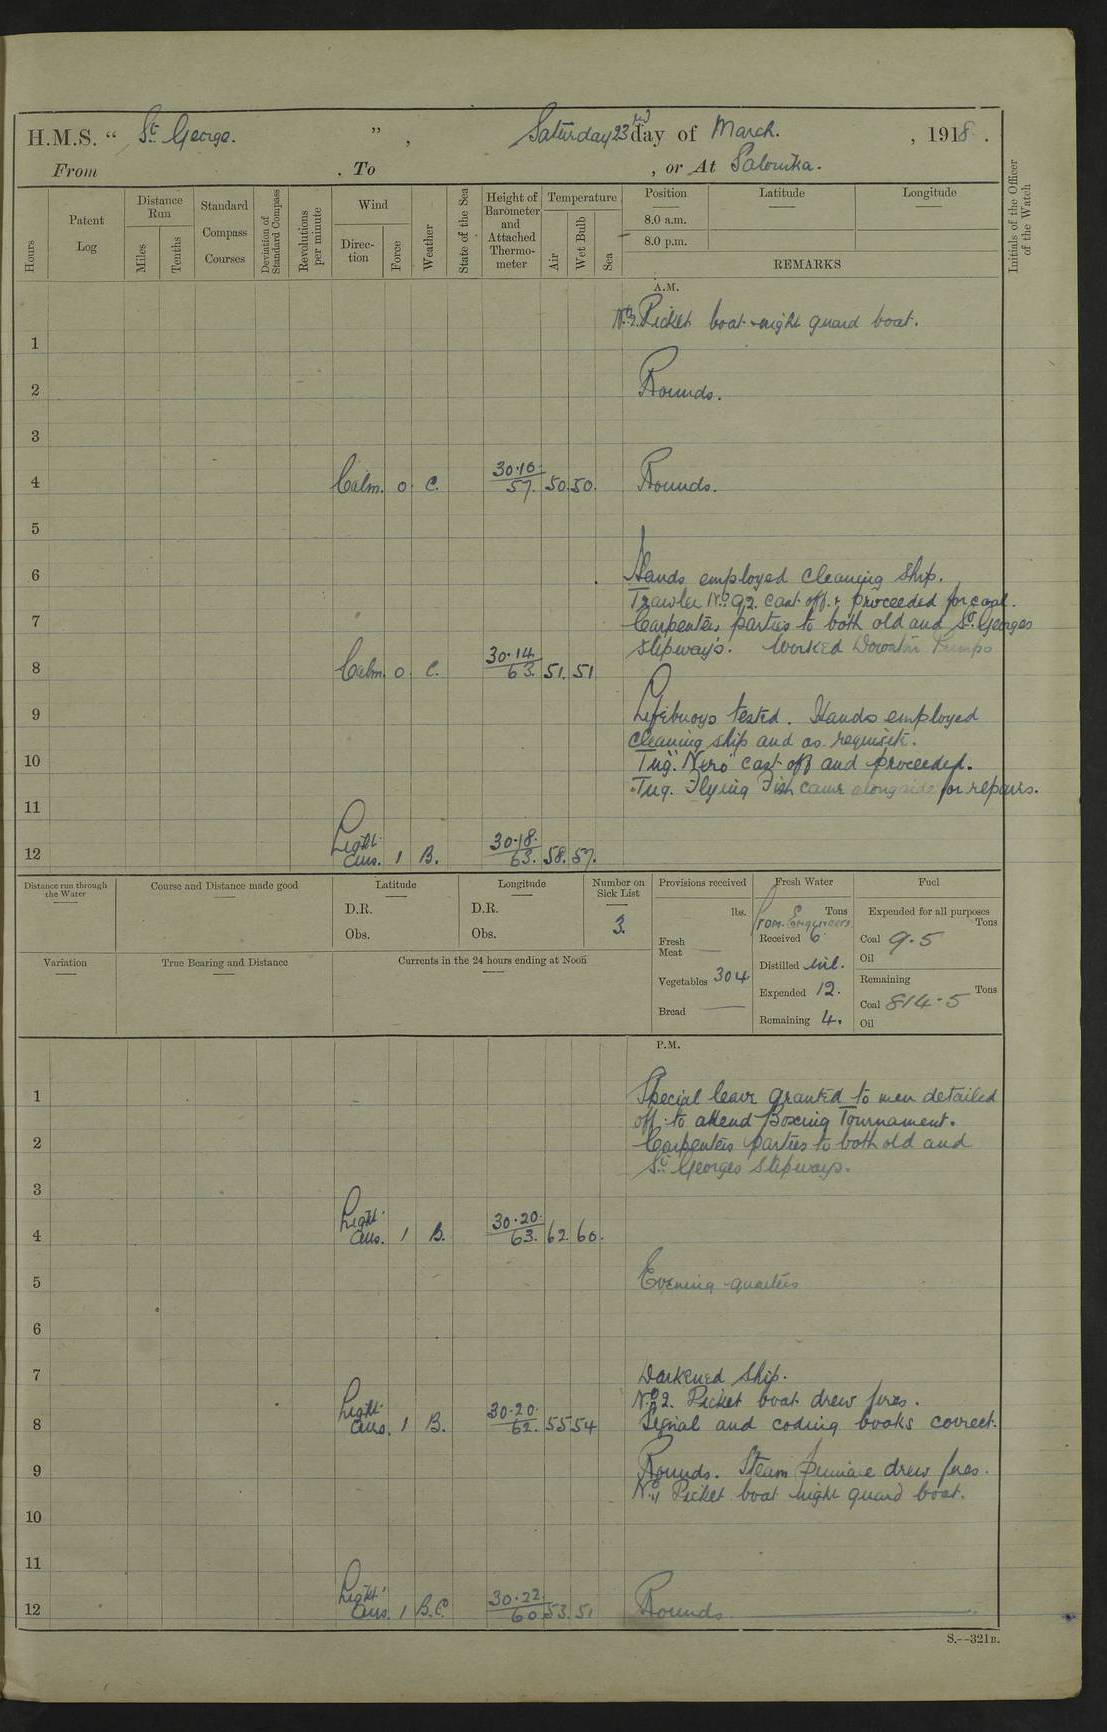 H.M.S. “ St. George. ” , Saturday 23rd day of March. , 1918.
From . To , or At Salonika.
Hours
Patent Log
Distance Run
Miles
Tenths
Standard Compass Courses
Deviation of Standard Compass
Revolutions per minute
Wind
Direction
Force
Weather
State of the Sea
Height of Barometer and Attached Thermometer
Temperature
Air
Wet Bulb
Sea
Position Latitude Longitude
8.0 a.m.
8.0 p.m.
REMARKS
Initials of the Officer of the Watch
A.M.
Picket boat night guard boat.
1
2 Rounds.
3
4 Calm. 0. C. 30.10. 57. 50. 50. Rounds.
5
6 Hands employed cleaning ship.
Trawler No. 92. cast off & proceeded for coal.
7 Carpenters parties to both old and St. Georges
slipways. Worked Downton Pumps
8 Calm. 0. C. 30.14 63. 51. 51
9 Lifebuoys tested. Hands employed
cleaning ship and as requisite.
10 Tug "Nero" cast off and proceeded.
Tug. Flying Fish came alongside for repairs.
11
12 Light airs. 1 B. 30.18. 63. 58. 57.
Distance run through the Water
Course and Distance made good
Latitude
D.R.
Obs.
Longitude
D.R.
Obs.
Number on Sick List
3.
Provisions received
lbs.
Fresh Meat
Vegetables 304
Bread
Fresh Water
Tons
From Engineers
Received 6
Distilled nil.
Expended 12.
Remaining 4.
Fuel
Expended for all purposes
Tons
Coal 9.5
Oil
Remaining
Tons
Coal 814.5
Oil
Variation
True Bearing and Distance
Currents in the 24 hours ending at Noon
P.M.
1 Special leave granted to men detailed
off to attend Boxing Tournament.
2 Carpenters parties to both old and
St. Georges slipways.
3
4 Light airs. 1 B. 30.20. 63. 62. 60.
5 Evening quarters
6
7 Darkened ship.
No. 2. Picket boat drew fires.
8 Light airs. 1 B. 30.20. 62. 55 54 Signal and coding books correct.
9 Rounds. Steam pinnace drew fires.
No. 1 Picket boat night guard boat.
10
11
12 Light airs. 1 B.C. 30.22. 60 53. 51 Rounds
S.—321B.